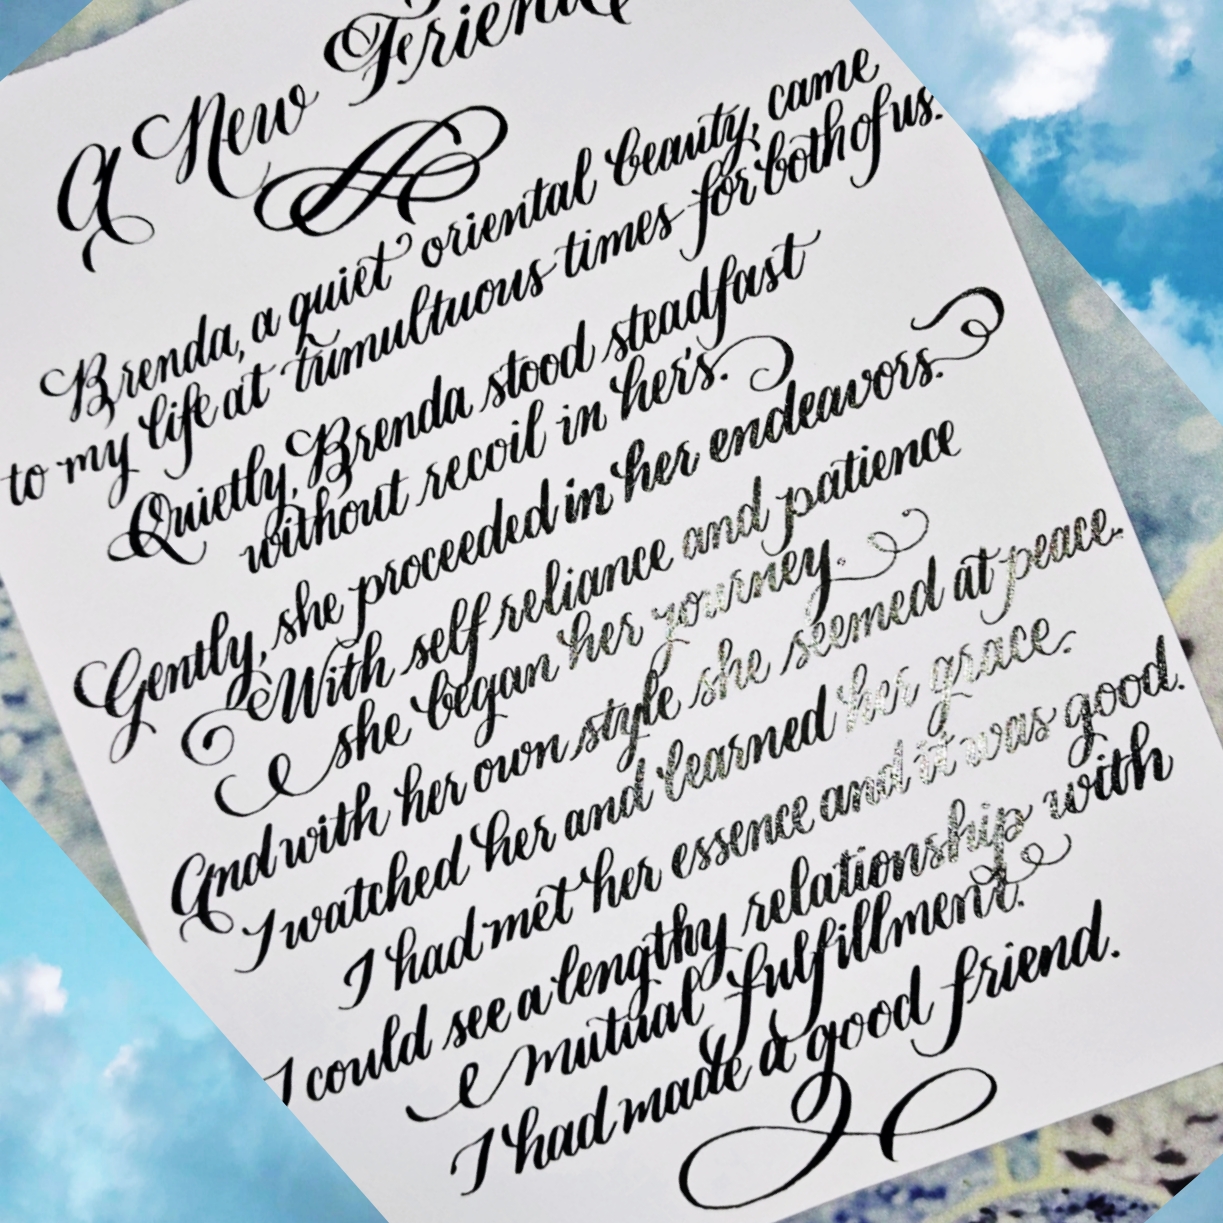 A New Friend
Brenda, a quiet oriental beauty, came
to my life at tumultuous times for both of us.
Quietly, Brenda stood steadfast
without recoil in her's.
Gently, she proceeded in her endeavors.
With self reliance and patience
she began her journey.
And with her own style she seemed at peace.
I watched her and learned her grace.
I had met her essence and it was good.
I could see a lengthy relationship with
mutual fulfillment.
I had made a good friend.